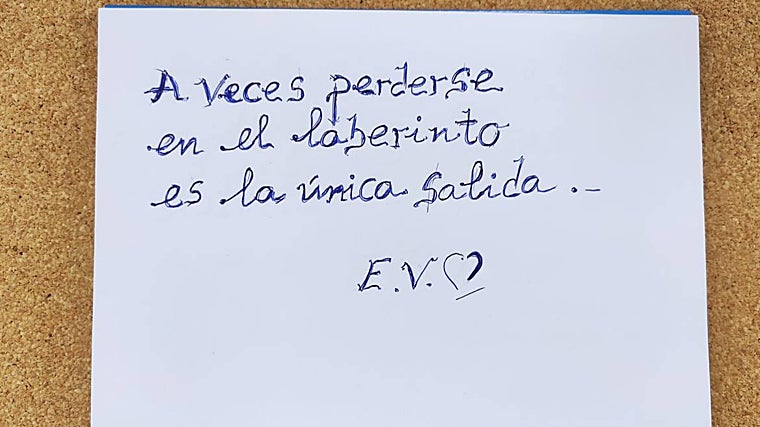 A veces perderse
en el laberinto
es la única salida.-
E.V.♡